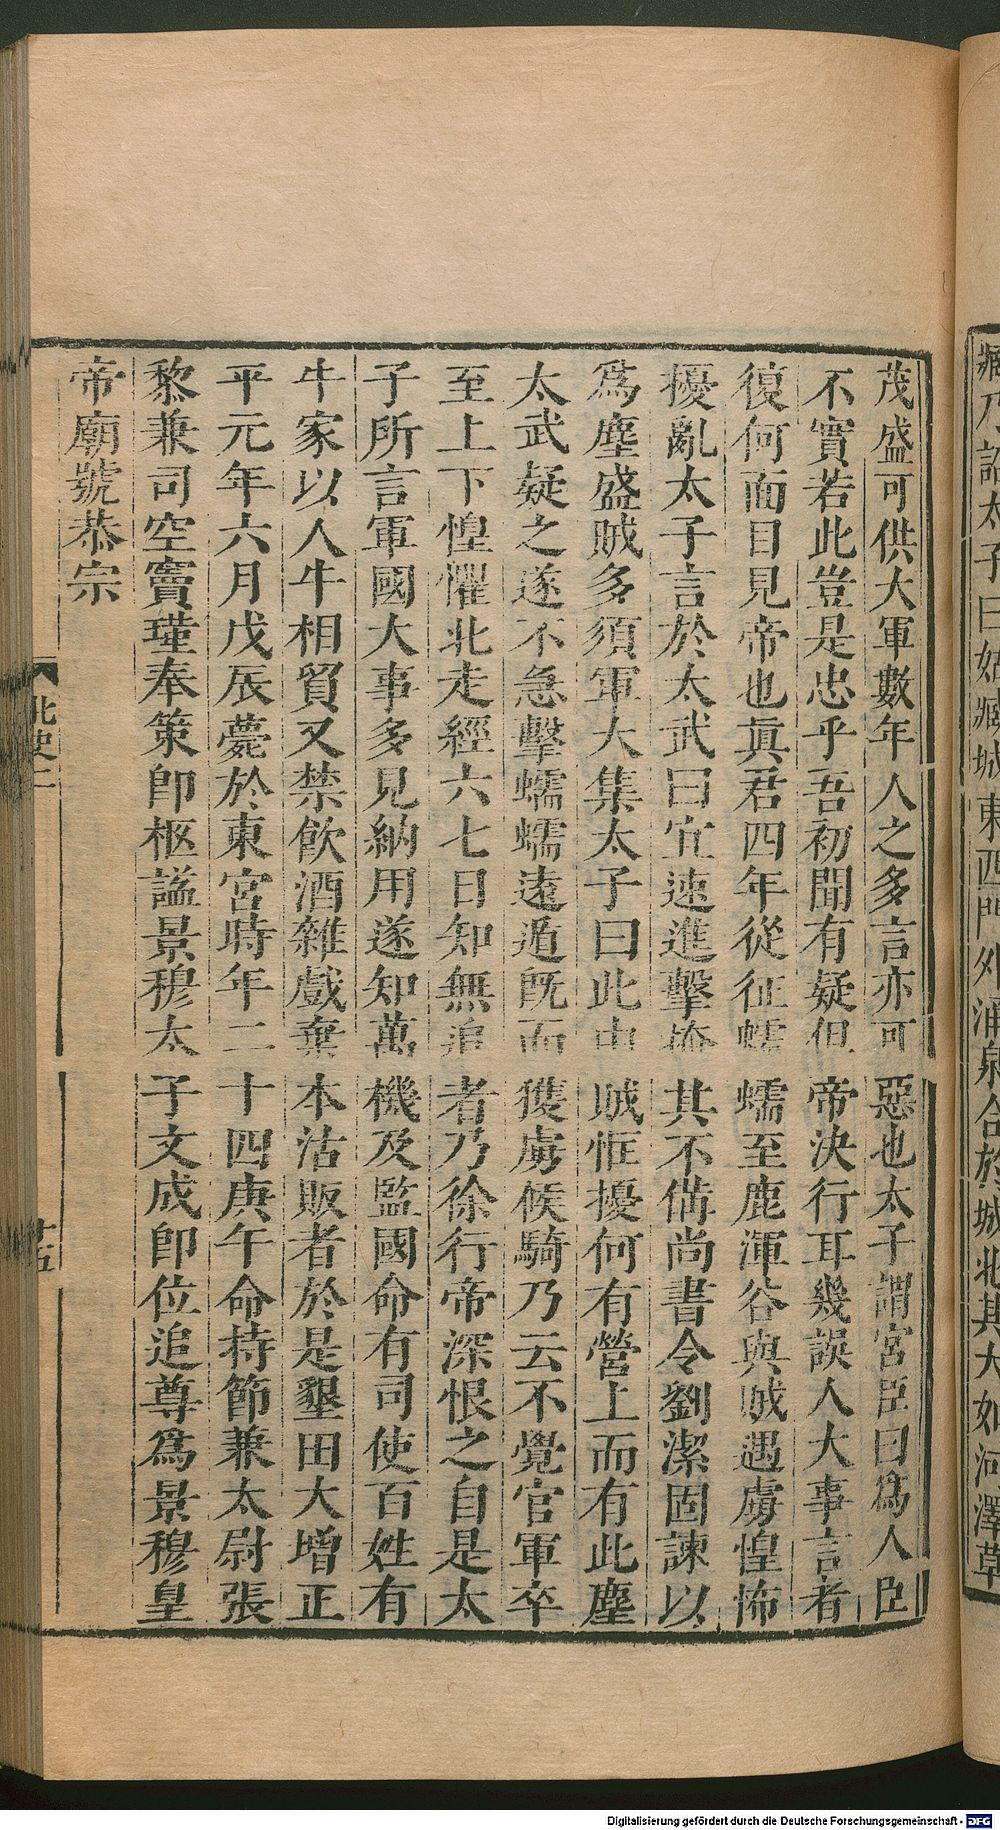 臧乃詔太子曰姑臧城東西門外涌泉合於城北其大如河澤草
茂盛可供大軍數年人之多言亦可惡也太子謂宮臣曰爲人臣
不實若此豈是忠乎吾初聞有疑但帝決行耳幾誤人大事言者
復何面目見帝也眞君四年從征蠕蠕至鹿渾谷與賊遇虜惶怖
擾亂太子言於太武曰宜速進擊掩其不備尚書令劉潔固諫以
爲塵盛賊多須軍大集太子曰此由賊恇擾何有營上而有此塵
太武疑之遂不急擊蠕蠕遠遁旣而獲虜候騎乃云不覺官軍卒
至上下惶懼北走經六七日知無追者乃徐行帝深恨之自是太
子所言軍國大事多見納用遂知萬機及監國命有司使百姓有
牛家以人牛相貿又禁飮酒雜戲棄本沽販者於是墾田大增正
平元年六月戊辰薨於東宮時年二十四庚午命持節兼太尉張
黎兼司空竇瑾奉策卽柩謚景穆太子文成卽位追尊爲景穆皇
帝廟號恭宗
北史二
十五
Digitalisierung gefördert durch die Deutsche Forschungsgemeinschaft - DFG